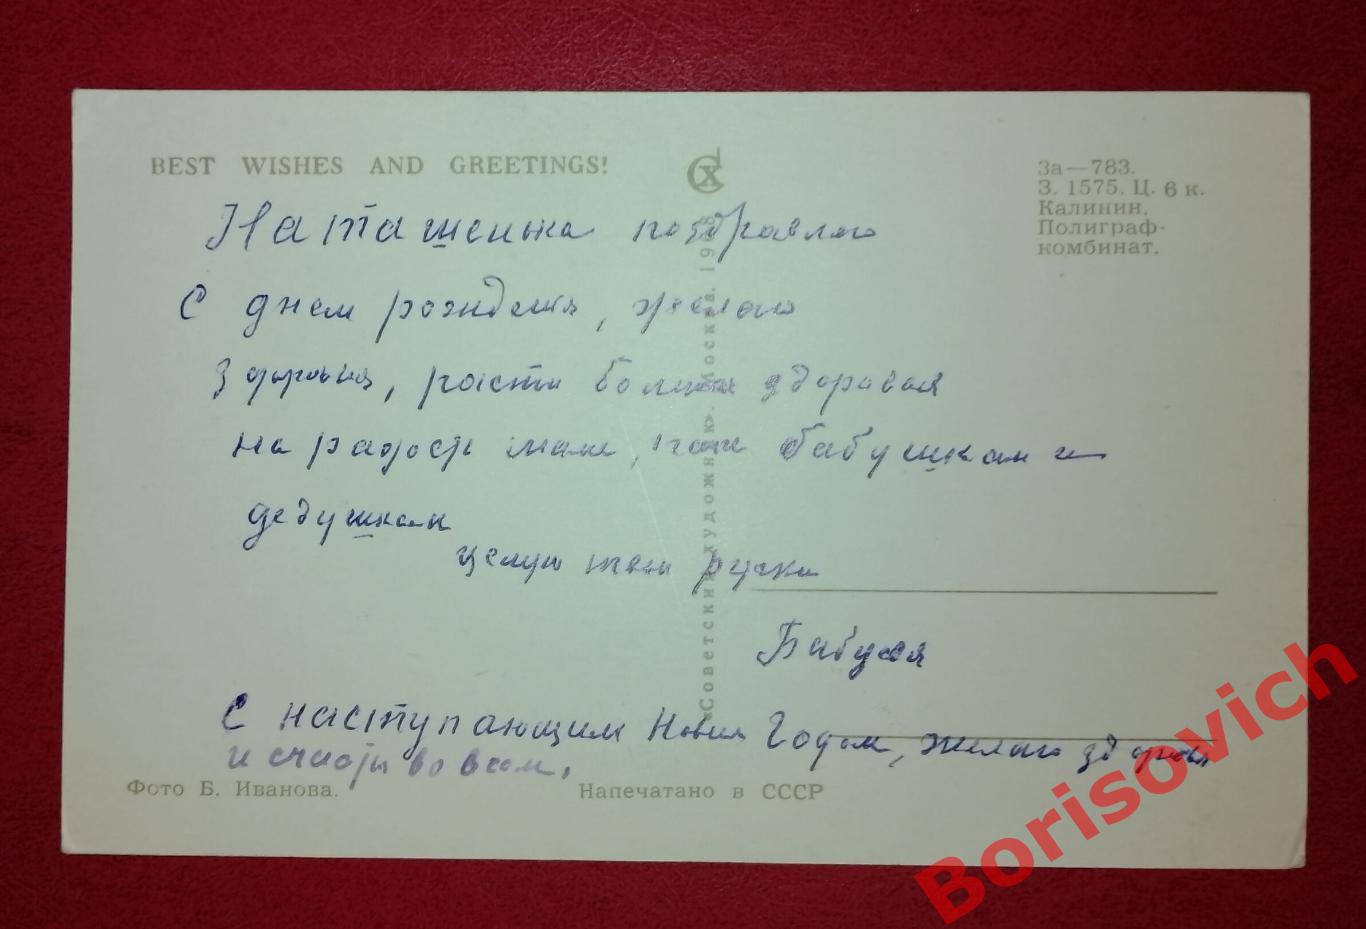 BEST WISHES AND GREETINGS!
За—783.
З. 1575. Ц. 6 к.
Калинин.
Полиграф-
комбинат.
Наташенька поздравляю
С днем рождения, желаю
здоровья, расти большая здоровая
на радость маме, папе бабушкам и
дедушкам
целую твои ручки
Бабуся
С наступающим Новым Годом, желаю здоровья
и счастья во всем.
«Советский художник». Москва. 1968
Фото Б. Иванова.
Напечатано в СССР
Borisovich